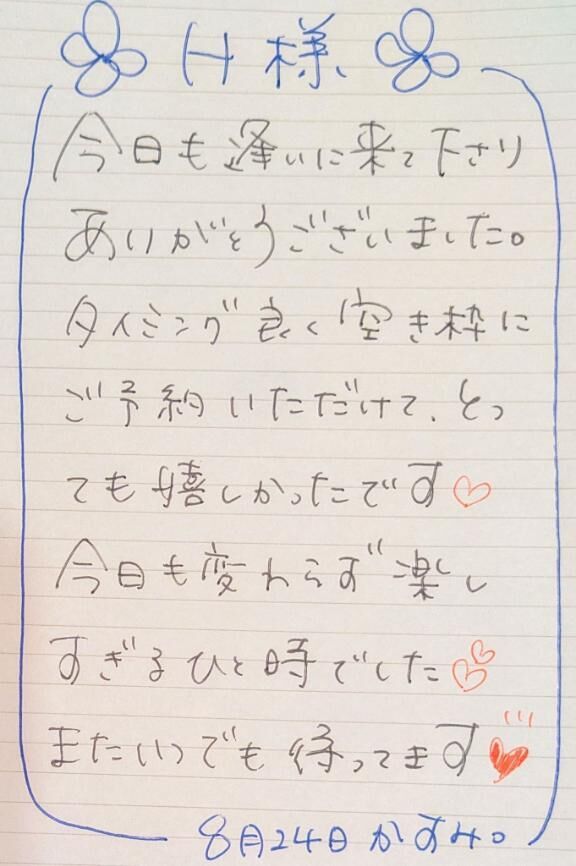 H様
今日も逢いに来て下さり
ありがとうございました。
タイミング良く空き枠に
ご予約いただけて、とっ
ても嬉しかったです
今日も変わらず楽し
すぎるひと時でした
またいつでも待ってます
8月24日かすみ。